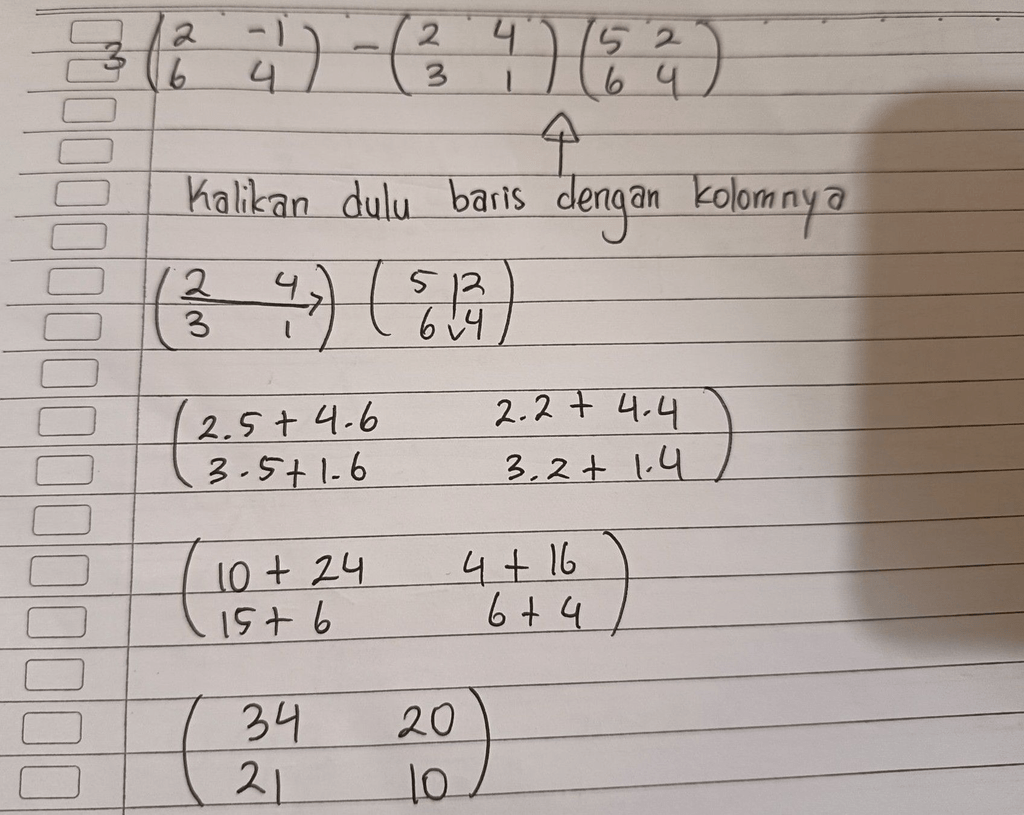 3 (2 -1) - (2 4) (5 2)
(6 4) (3 1) (6 4)
Kalikan dulu baris dengan kolomnya
(2 4) (5 2)
(3 1) (6 4)
(2.5 + 4.6 2.2 + 4.4)
(3.5 + 1.6 3.2 + 1.4)
(10 + 24 4 + 16)
(15 + 6 6 + 4)
(34 20)
(21 10)